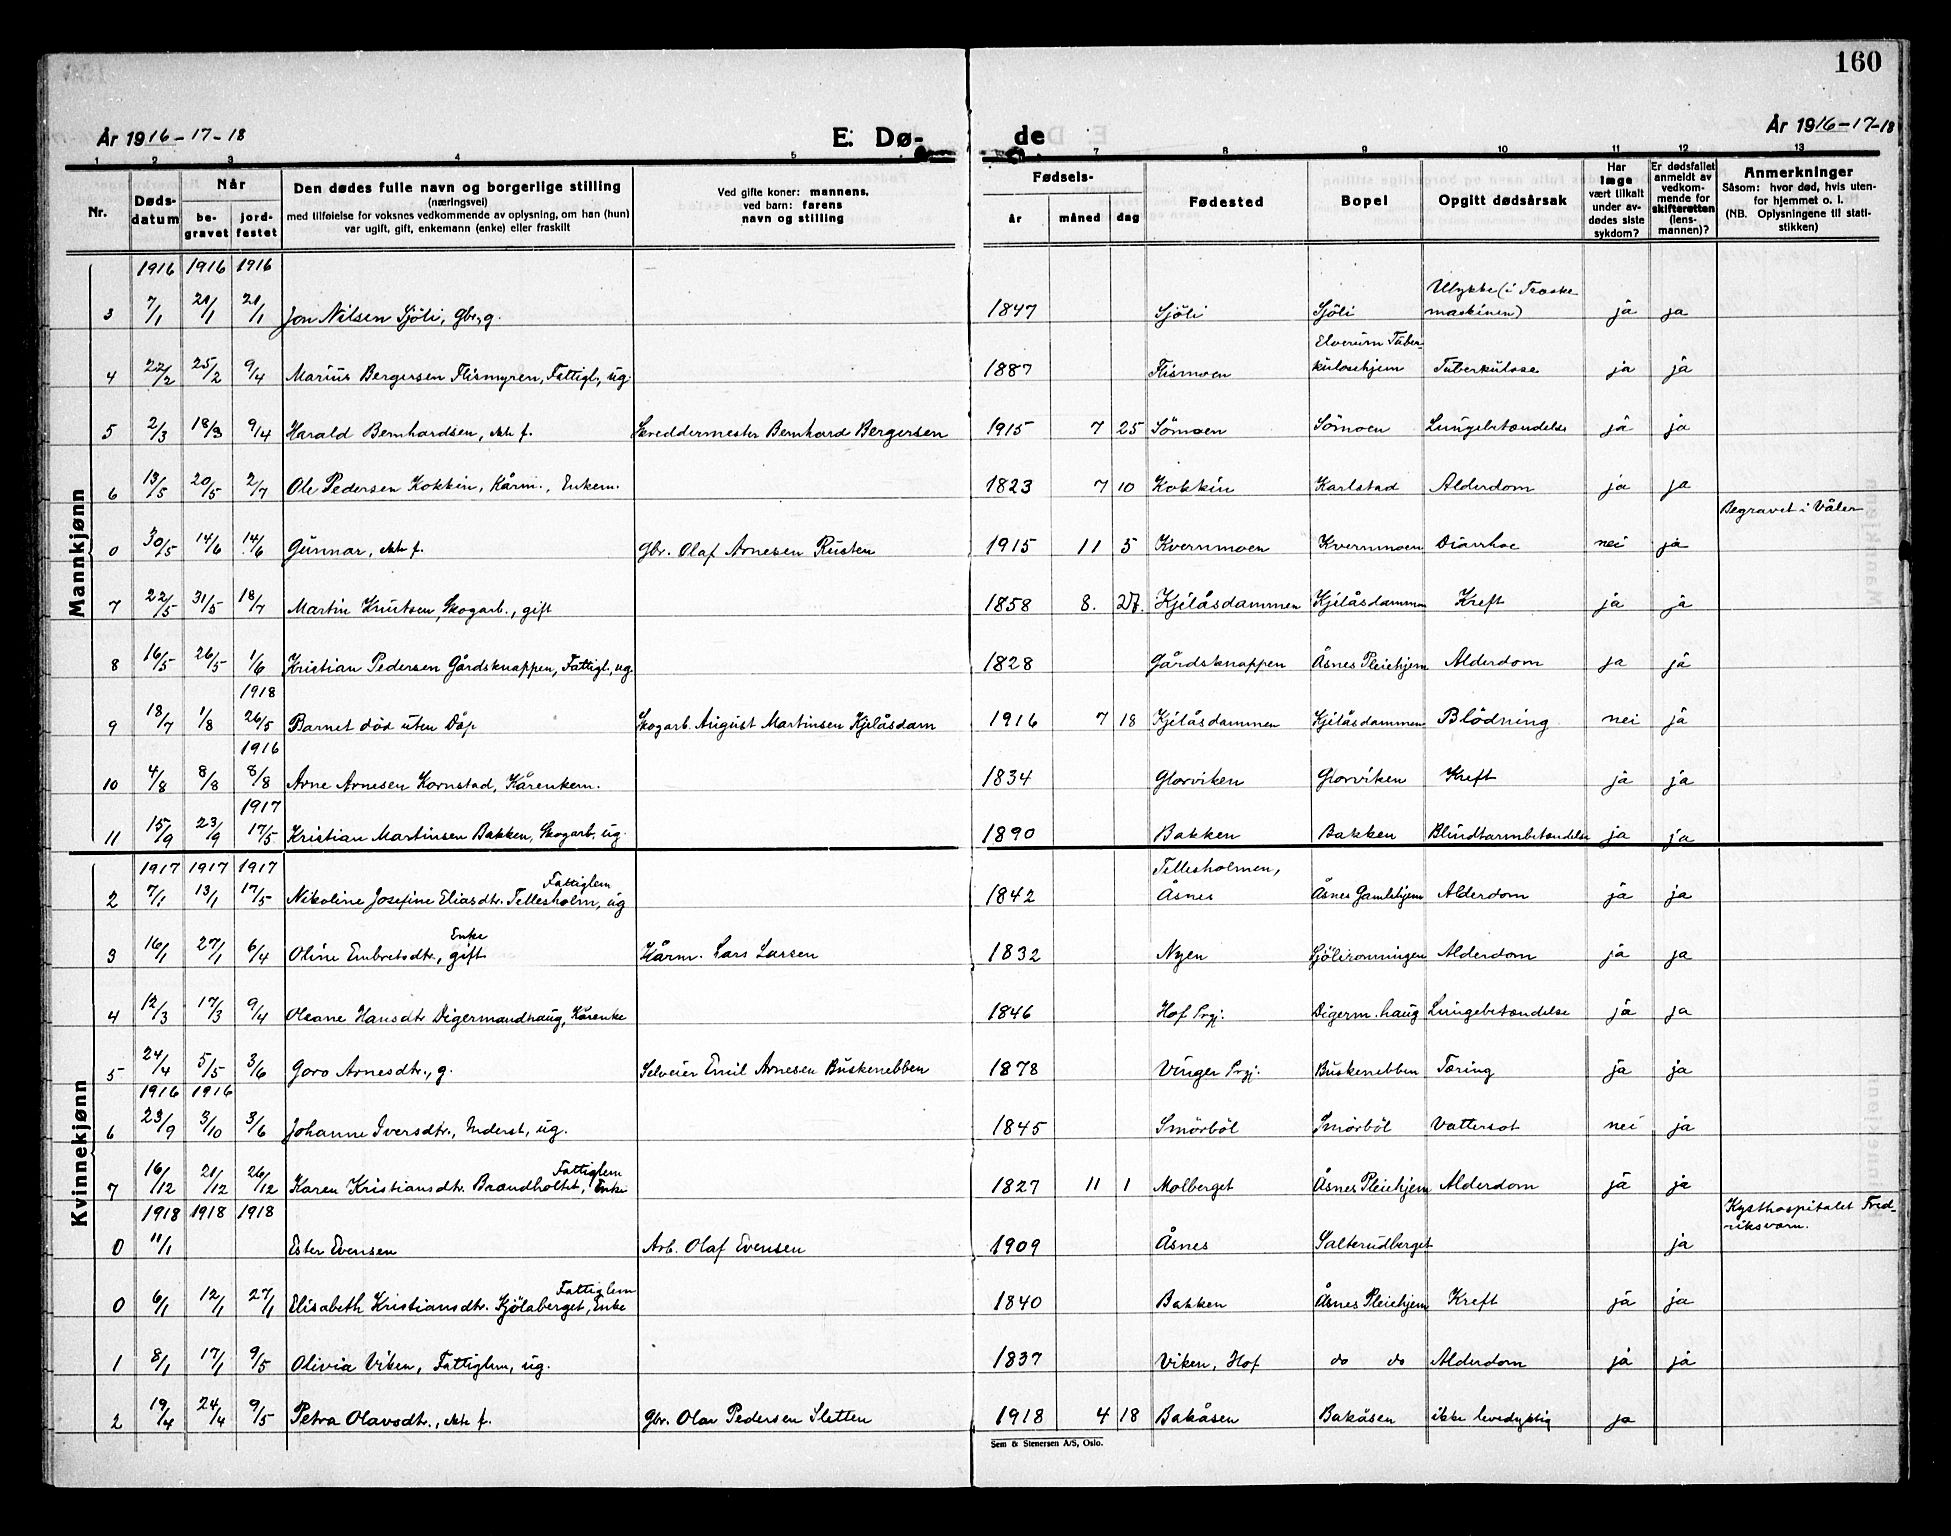 160
År 1916-17-18 E. Dø- de År 1916-17-18
1 2 3 4 5 7 8 9 10 11 12 13
Nr. Døds-datum Når be-gravet jord-festet Den dødes fulle navn og borgerlige stilling (næringsvei) med tilføielse for voksnes vedkommende av oplysning, om han (hun) var ugift, gift, enkemann (enke) eller fraskilt Ved gifte koner: mannens, ved barn: farens navn og stilling Fødsels- år måned dag Fødested Bopel Opgitt dødsårsak Har læge vært tilkalt under av-dødes siste sykdom? Er dødsfallet anmeldt av vedkom-mende for skifteretten (lens-mannen)? Anmerkninger Såsom: hvor død, hvis uten-for hjemmet o. l. (NB. Oplysningene til stati-stikken)
Mannkjønn
1916 1916 1916
3 7/1 21/1 21/1 Jon Nilsen Sjöli, Gbr, g. 1847 Sjöli Sjöli Ulykke (i Træske maskinen) ja ja
4 22/2 25/2 9/4 Marius Bergersen Flismyren, Fattigl., ug. 1887 Flismoen Elverum Tuber-kulosehjem Tuberkulose ja ja
5 2/3 18/3 9/4 Harald Bernhardsen, ekte f. Skreddermester Bernhard Bergersen 1915 7 25 Sömoen Sömoen Lungebetændelse ja ja
6 13/5 20/5 2/7 Ole Pedersen Kokkin, Kårm., Enkem. 1823 7 10 Kokkin Karlstad Alderdom ja ja
0 30/5 14/6 14/6 Gunnar, ekte f. Gbr. Olaf Arnesen Rusten 1915 11 5 Kvernmoen Kvernmoen Diarrhoe nei ja Begravet i Våler
7 22/5 31/5 18/7 Martin Knutsen, Skogarb., gift 1858 8. 27. Kjelåsdammen Kjelåsdammen Kreft ja ja
8 16/5 26/5 1/6 Kristian Pedersen Gårdsknappen, Fattigl., ug. 1828 Gårdsknappen Åsnes Pleiehjem Alderdom ja ja
1918
9 18/7 1/8 26/5 Barnet död uten Dåp Skogarb. August Martinsen Kjelåsdam 1916 7 18 Kjelåsdammen Kjelåsdammen Blödning nei ja
1916
10 4/8 8/8 8/8 Arne Arnesen Kornstad, Kårenkem. 1834 Glorviken Glorviken Kreft ja ja
1917
11 15/9 23/9 17/5 Kristian Martinsen Bakken, Skogarb., ug. 1890 Bakken Bakken Blindtarmbetændelse ja ja
Kvinnekjønn
1917 1917 1917
2 7/1 13/1 17/5 Nikoline Josefine Eliasdtr. Tellesholm, Fattiglem ug 1842 Tellesholmen, Åsnes Åsnes Gamlehjem Alderdom ja ja
3 16/1 27/1 6/4 Oline Embretsdtr., Enke gift Kårm. Lars Larsen 1832 Nyen Sjölirønningen Alderdom ja ja
4 12/3 17/3 9/4 Oleane Hansdtr Digermandhaug, Kårenke 1846 Hof Prgj. Digerm.haug Lungebetændelse ja ja
5 24/4 5/5 3/6 Goro Arnesdtr., g. Selveier Emil Arnesen Buskenebben 1878 Vinger Prgj. Buskenebben Tæring ja ja
1916 1916
6 23/9 3/10 3/6 Johanne Iversdtr., Inderst, ug. 1845 Smörböl Smörböl Vattersot nei ja
7 16/12 21/12 26/12 Karen Kristiansdtr. Brandholtet, Fattiglem Enke 1827 11 1 Molberget Åsnes Pleiehjem Alderdom ja ja
1918 1918 1918
0 11/1 Ester Evensen Arb. Olaf Evensen 1909 Åsnes Salterudberget ja Kysthospitalet Fred-riksværn.
0 6/1 12/1 27/1 Elisabeth Kristiansdtr. Kjölaberget, Fattiglem Enke 1840 Bakken Åsnes Pleiehjem Kreft ja ja
1 8/1 17/1 9/5 Olivia Viken, Fattiglem, ug. 1837 Viken, Hof do do Alderdom ja ja
2 19/4 24/4 9/5 Petra Olavsdtr., ekte f. Gbr. Olav Pedersen Sletten 1918 4 18 Bakåsen Bakåsen ikke levedyktig ja
Sem & Stenersen A/S, Oslo.